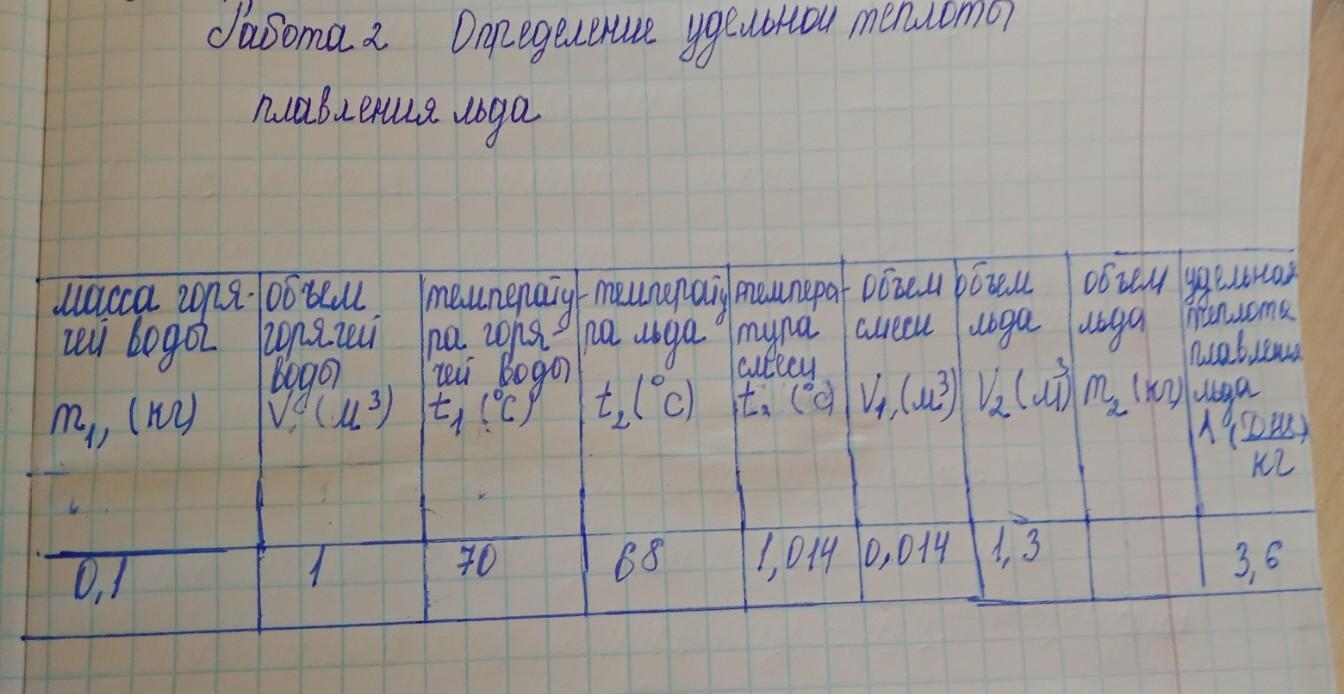 Работа 2 Определение удельной теплоты
плавления льда
масса горя-
чей воды
m₁, (кг)
объем
горячей
воды
V, (м³)
температу-
ра горя-
чей воды
t₁ (°C)
температу
ра льда
t₂ (°C)
темпера-
тура
смеси
(°C)
объем
смеси
V₁, (м³)
объем
льда
V₂ (м³)
объем
льда
m₂ (кг)
удельная
теплота
плавления
льда
λ, (Дж)
кг
0,1 1 70 68 1,014 0,014 1,3 3,6